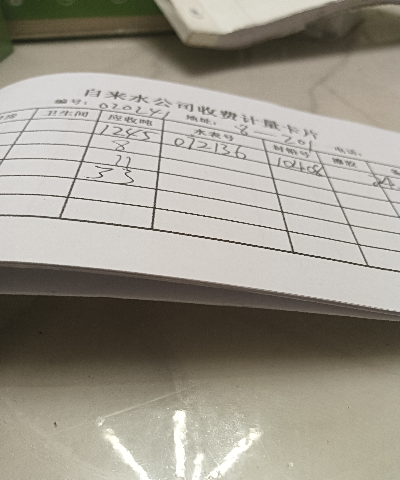 自来水公司收费计量卡片
编号: 020241 地址: 8—201 电话:
卫生间 应收吨 水表号 封铅号
1245 012136
8
11
33